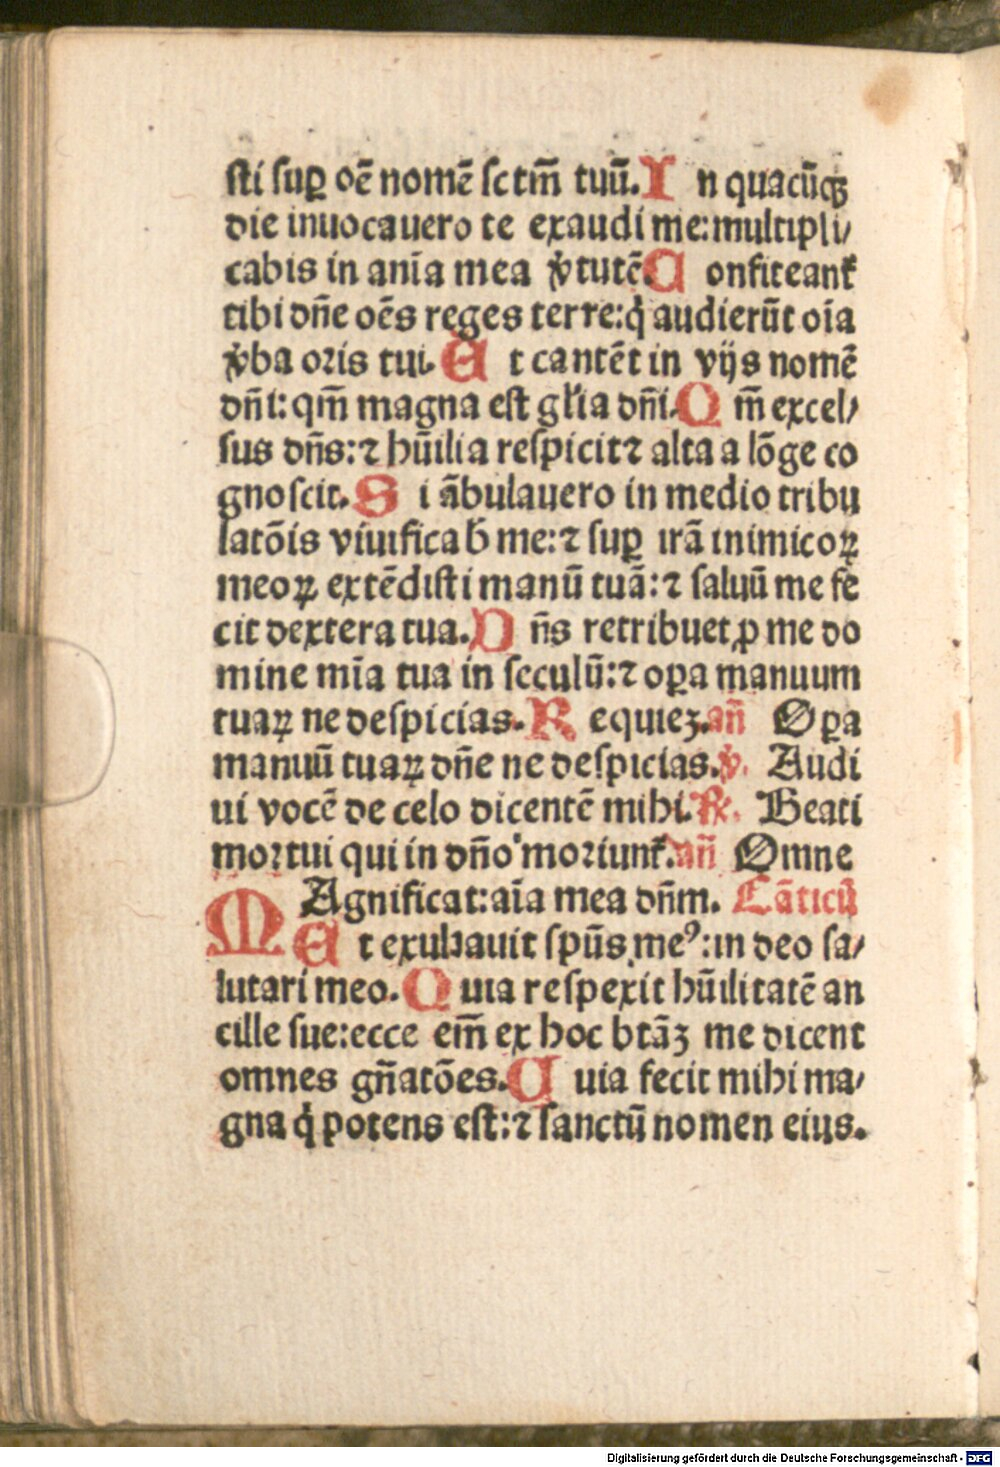 sti suꝑ oē nomē sctm̄ tuū. I n quacūqꝫ
die inuocauero te exaudi me: multipli/
cabis in anīa mea v̓tutē. C onfiteant᷑
tibi dn̄e oēs reges terre: q̇ audierūt oīa
v̓ba oris tui. E t cantēt in vijs nomē
dn̄i: qm̄ magna est gl̓ia dn̄i. Q m̄ excel/
sus dn̄s: ⁊ hūilia respicit ⁊ alta a lōge co
gnoscit. S i ābulauero in medio tribu
latōis viuificab̄ me: ⁊ suꝑ irā inimicoꝝ
meoꝝ extēdisti manū tuā: ⁊ saluū me fe
cit dextera tua. D n̄s retribuet ꝓ me do
mine mīa tua in seculū: ⁊ oꝑa manuum
tuaꝝ ne despicias. R equieꝫ. an̄ Oꝑa
manuū tuaꝝ dn̄e ne despicias. v̓. Audi
ui vocē de celo dicentē mihi. ℞. Beati
mortui qui in dn̄o moriunt᷑. an̄ Omne
M Agnificat: aīa mea dn̄m. Cāticū
E t exultauit spūs meꝰ: in deo sa/
lutari meo. Q uia respexit hūilitatē an
cille sue: ecce em̄ ex hoc btāꝫ me dicent
omnes gn̄atōes. Q uia fecit mihi ma/
gna q̇ potens est: ⁊ sanctū nomen eius.
Digitalisierung gefördert durch die Deutsche Forschungsgemeinschaft - DFG